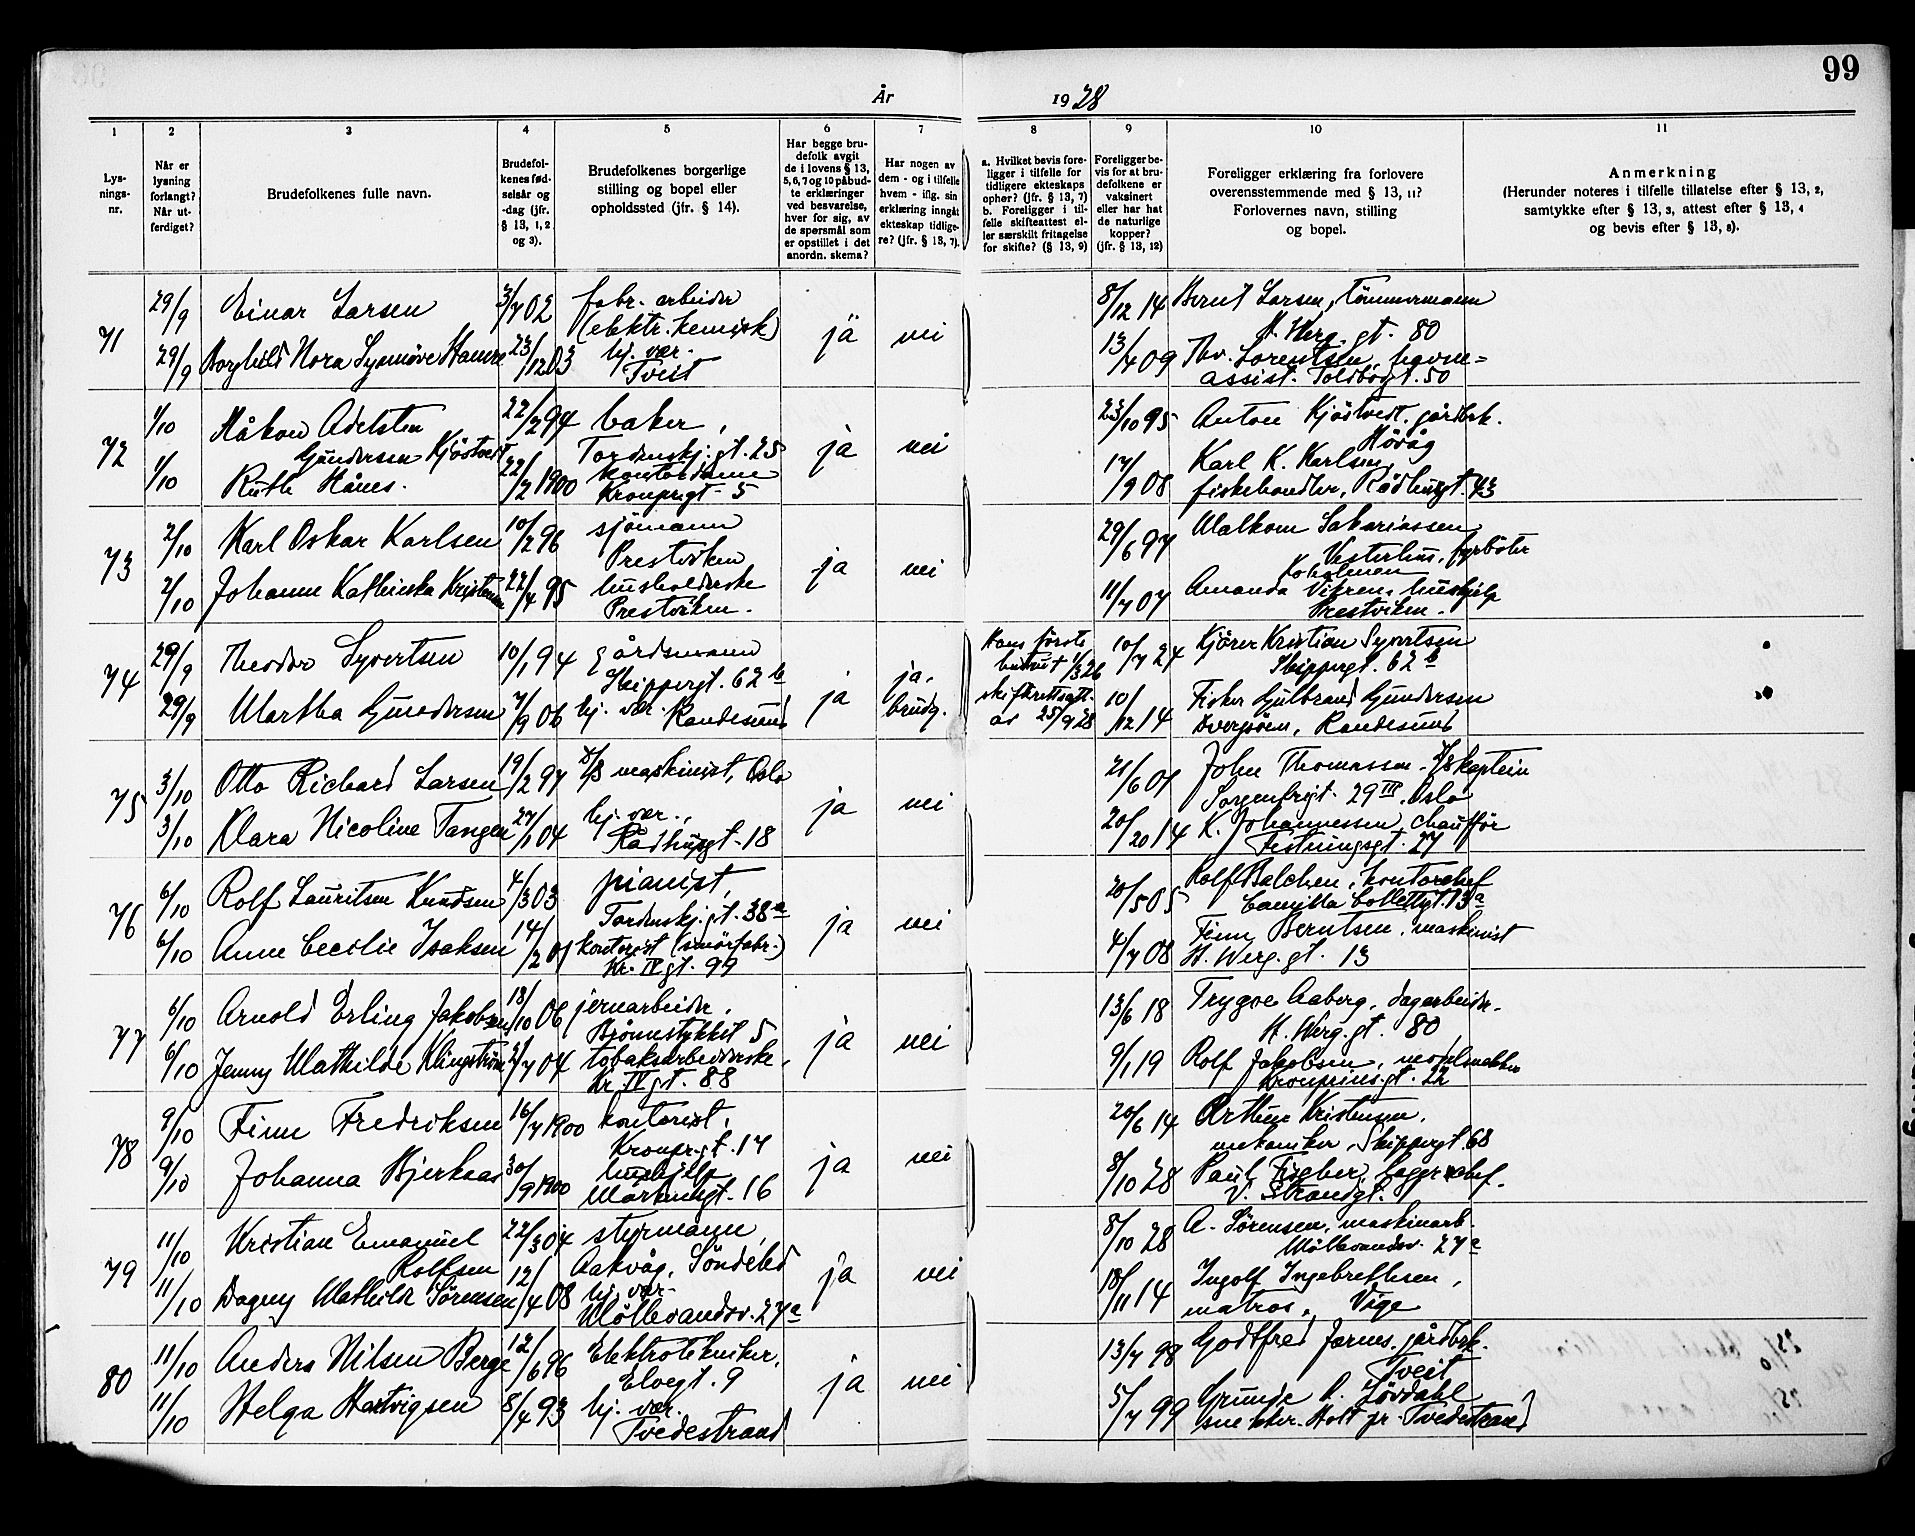 99
År 1928
1 2 3 4 5 6 7 8 9 10 11
Lysningsnr.
Når er lysning forlangt? Når utferdiget?
Brudefolkenes fulle navn.
Brudefolkenes fødselsår og -dag (jfr. § 13, 1, 2 og 3).
Brudefolkenes borgerlige stilling og bopel eller opholdssted (jfr. § 14).
Har begge brudefolk avgit de i lovens § 13, 5, 6, 7 og 10 påbudte erklæringer ved besvarelse, hver for sig, av de spørsmål som er opstillet i det anordn. skema?
Har nogen av dem - og i tilfelle hvem - iflg. sin erklæring inngåt ekteskap tidligere? (jfr. § 13, 7).
a. Hvilket bevis foreligger i tilfelle for tidligere ekteskaps ophør? (jfr. § 13, 7) b. Foreligger i tilfelle skifteattest eller særskilt fritagelse for skifte? (§ 13, 9)
Foreligger bevis for at brudefolkene er vaksinert eller har hat de naturlige kopper? (jfr. § 13, 12)
Foreligger erklæring fra forlovere overensstemmende med § 13, 11? Forlovernes navn, stilling og bopel.
Anmerkning (Herunder noteres i tilfelle tillatelse efter § 13, 2, samtykke efter § 13, 3, attest efter § 13, 4 og bevis efter § 13, 8).
71 29/9 Einar Larsen 3/7 02 fabr. arbeider (elektr. kemisk) ja nei 8/12 14 Bernt Larsen, Tömmermann H. Werg. gt. 80
29/9 Borghild Nora Synnöve Hamre 23/12 03 hj. vær. Tveit 13/4 09 Thv. Lorentsen havneassist. Toldbodgt. 50
72 1/10 Håkon Adelsten Gundersen Kjöstvedt 22/2 94 baker, Tordenskj. gt. 25 ja nei 23/10 95 Anton Kjöstvedt. gårdbrk. Hövåg
1/10 Ruth Hånes. 22/2 1900 kontordame Kronprgt. 5 17/9 08 Karl K. Karlsen, fiskehandler, Rådhusgt. 43
73 2/10 Karl Oskar Karlsen 10/2 96 sjömann Prestviken ja nei 29/6 97 Malkom Sakariassen Vesterhus, fyrböter Koholmen
2/10 Johanne Kathinka Kristensen 22/4 95 husholderske Prestviken. 11/7 07 Amanda Vikren, hushjelp Prestviken.
74 29/9 Theodor Syvertsen 10/1 94 gårdsmann Skippergt. 62 b ja ja, brudg. Hans første hustru † 1/3 26 skifterettsatt. av 25/9 28 10/7 24 Kjörer Kristian Syvertsen Skippergt. 62 b
29/9 Martha Gundersen 7/9 06 hj. vær. Randesund 10/12 14 Fisker Gulbrand Gundersen Dvergsöen, Randesund
75 3/10 Otto Richard Larsen 19/2 97 d/s maskinist, Oslo ja nei 21/6 01 John Thomassen, d/s kaptein Sorgenfrigt. 29 III, Oslo
3/10 Klara Nicoline Tangen 27/1 04 hj. vær., Rådhusgt. 18 20/20 14 K. Johannessen, chauffør Festningsgt. 27
76 6/10 Rolf Lauritsen Knudsen 4/3 03 pianist, Tordenskj. gt. 38 a ja nei 20/5 05 Rolf Balchen, kontorchef Camilla Collettgt. 13 a
6/10 Anne Cecilie Isaksen 14/2 01 kontorist (smörfabr.) Kr. IV gt. 99 4/7 08 Finn Berntsen, maskinist H. Werg. gt. 13
77 6/10 Arnold Erling Jakobsen 18/10 06 jernarbeider, Bjönnestykket 5 ja nei 13/6 18 Trygve Aaberg, dagarbeider. H. Werg. gt. 80
6/10 Jenny Mathilde Klingström /7 04 tobaksarbeiderske, Kr. IV gt. 88 9/1 19 Rolf Jakobsen, Kronprinsgt. 22
78 9/10 Finn Fredriksen 16/7 1900 kontorist, Kronpr. gt. 17 ja nei 20/6 14 Arthur Kristensen, mekaniker, Skippergt. 68
9/10 Johanna Bjerkaas 30/9 1900 hushjelp Markensgt. 16 8/10 28 Paul Fischer, lagerchef. V. Strandgt.
79 11/10 Kristian Emanuel Rolfsen 22/3 04 styrmann, Aakvåg, Söndeled ja nei 8/10 28 A. Sörensen, maskinarb. Möllevandsv. 27 a
11/10 Dagny Mathilde Sörensen 12/4 08 hj. vær. Möllevandsv. 27 a 18/11 14 Ingolf Ingebrethsen, matros, Vige
80 11/10 Anders Nilsen Berge 12/6 96 Elektrotekniker, Elvegt. 9 ja nei 13/7 98 Godtfred Jernes, gårdbrk. Tveit
11/10 Helga Hartvigsen 8/4 93 hj. vær. Tvedestrand 5/7 99 Grunde A. Lövdahl snekker. Holt pr. Tvedestrand